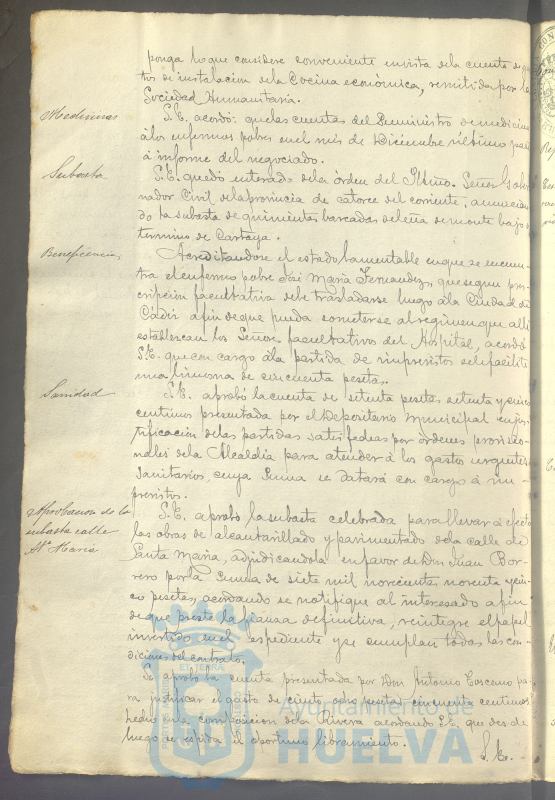 ponga lo que considere conveniente en vista de la cuenta de gas-
tos de instalacion de la Cocina económica, remitida por la
Sociedad Humanitaria.
Medicinas
S.E. acordó: que las cuentas del Suministro de medicinas
á los enfermos pobres en el mes de Diciembre último pase
á informe del negociado.
Subasta
S.E. quedó enterado de la órden del Iltmo. Señor Gober
nador Civil de la provincia de catorce del corriente, anuncian
do la subasta de quinientas barcadas de leña de monte bajo
termino de Cartaya.
Beneficencia
Acreditandose el estado lamentable en que se encuen-
tra el enfermo pobre José María Fernandez, que segun pres
cripción facultativa debe trasladarse luego á la Ciudad de
Cádiz a fin de que pueda someterse al regimen que alli
establezcan los Señores facultativos del Hospital, acordó
S.E. que con cargo á la partida de imprevistos se le facilite
una limosna de cincuenta pesetas.
Sanidad
S.E. aprobó la cuenta de setenta pesetas setenta y cinco
centimos presentada por el Depositario Municipal en jus-
tificación de las partidas satisfechas por órdenes provisio
nales de la Alcaldía para atender á los gastos urgentes
Sanitarios, cuya suma se datará con cargo á im-
previstos.
Aprobacion de la
subasta calle
Sta Maria
S.E. aprobó la subasta celebrada para llevar á efecto
las obras de alcantarillado y pavimentado de la calle de
Santa Maria, adjudicandola en favor de Don Juan Bor-
rero por la suma de siete mil novecientas noventa y cin-
co pesetas, acordando se notifique al interesado a fin
de que preste la fianza definitiva, reintegre el papel
invertido en el espediente y se cumplan todas las con-
diciones del contrato.
Se aprobó la cuenta presentada por Don Antonio pa-
ra justificar el gasto de ciento once pesetas cincuenta centimos
hecho en la composicion de la Rivera acordando S.E. que desde
luego se espida el oportuno libramiento.
S.E.
Ayuntamiento de
HUELVA